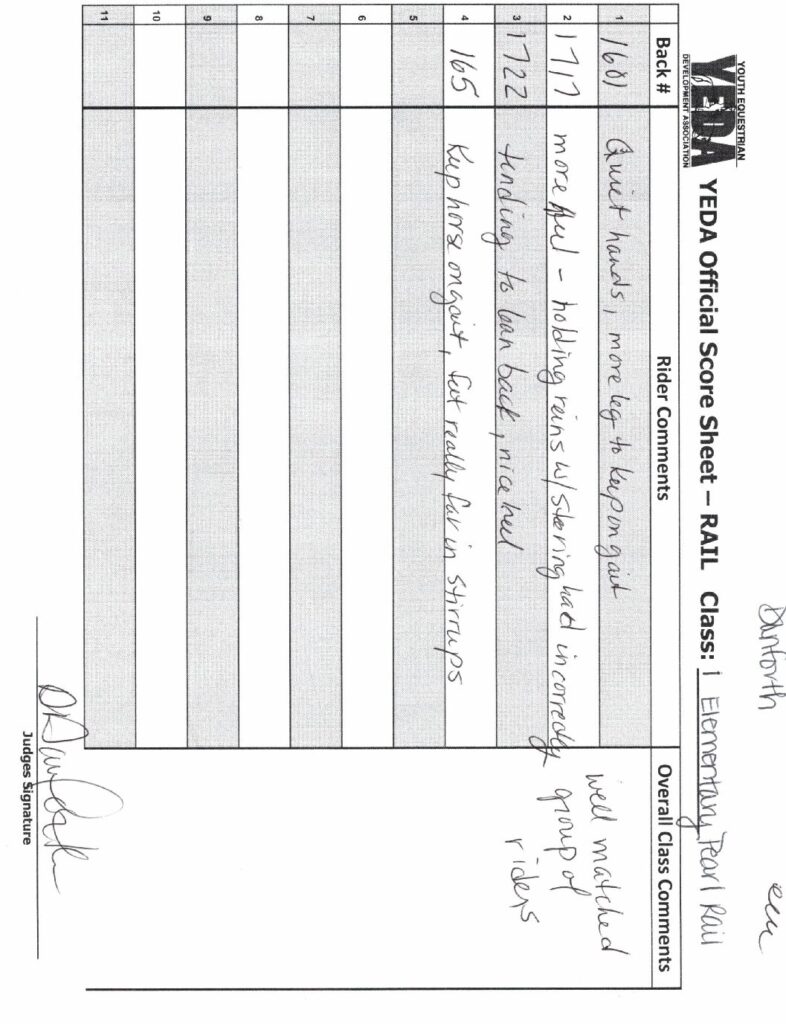 Danforth
YOUTH EQUESTRIAN
YEDA
DEVELOPMENT ASSOCIATION
YEDA Official Score Sheet – RAIL Class: 1 Elementary Pearl Rail
Back # Rider Comments Overall Class Comments
1 1601 Quiet hands, more leg to keep on gait
2 1717 more - holding reins w/ steering hand incorrectly
3 1722 tending to lean back, nice heel
4 165 Keep horse on gait, feet really far in stirrups
5
6
7
8
9
10
11
well matched
group of
riders
Judges Signature